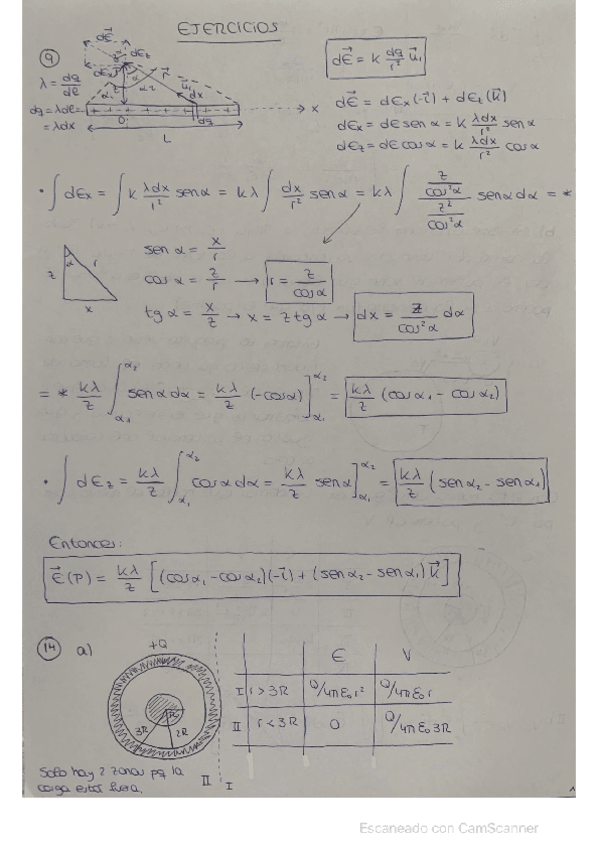 EJERCICIOS
9
dE⃗ = k dq/r² u⃗₁
λ = dq/dl
dq = λdl =
= λdx
dE⃗
dEz
dEx
P
α
α₂
r⃗
u⃗₁
dx
+ + + + + + + +
0
dq
x
L
dE⃗ = dEx(-i⃗) + dEz(k⃗)
dEx = dE sen α = k λdx/r² sen α
dEz = dE cos α = k λdx/r² cos α
• ∫ dEx = ∫ k λdx/r² sen α = kλ ∫ dx/r² sen α = kλ ∫ (z/cos²α)/(z²/cos²α) sen α dα = *
z
α
r
x
sen α = x/r
cos α = z/r → r = z/cos α
tg α = x/z → x = z tg α → dx = z/cos²α dα
= * kλ/z ∫_α₁^α₂ sen α dα = kλ/z (-cos α)]_α₁^α₂ = kλ/z (cos α₁ - cos α₂)
• ∫ dEz = kλ/z ∫_α₁^α₂ cos α dα = kλ/z sen α]_α₁^α₂ = kλ/z (sen α₂ - sen α₁)
Entonces:
E⃗(P) = kλ/z [(cos α₁ - cos α₂)(-i⃗) + (sen α₂ - sen α₁) k⃗]
14 a)
+Q
R
3R
2R
II I
E V
I r > 3R Q/4πε₀r² Q/4πε₀r
II r < 3R 0 Q/4πε₀3R
Solo hay 2 zonas pq la
carga está fuera.
1
Escaneado con CamScanner